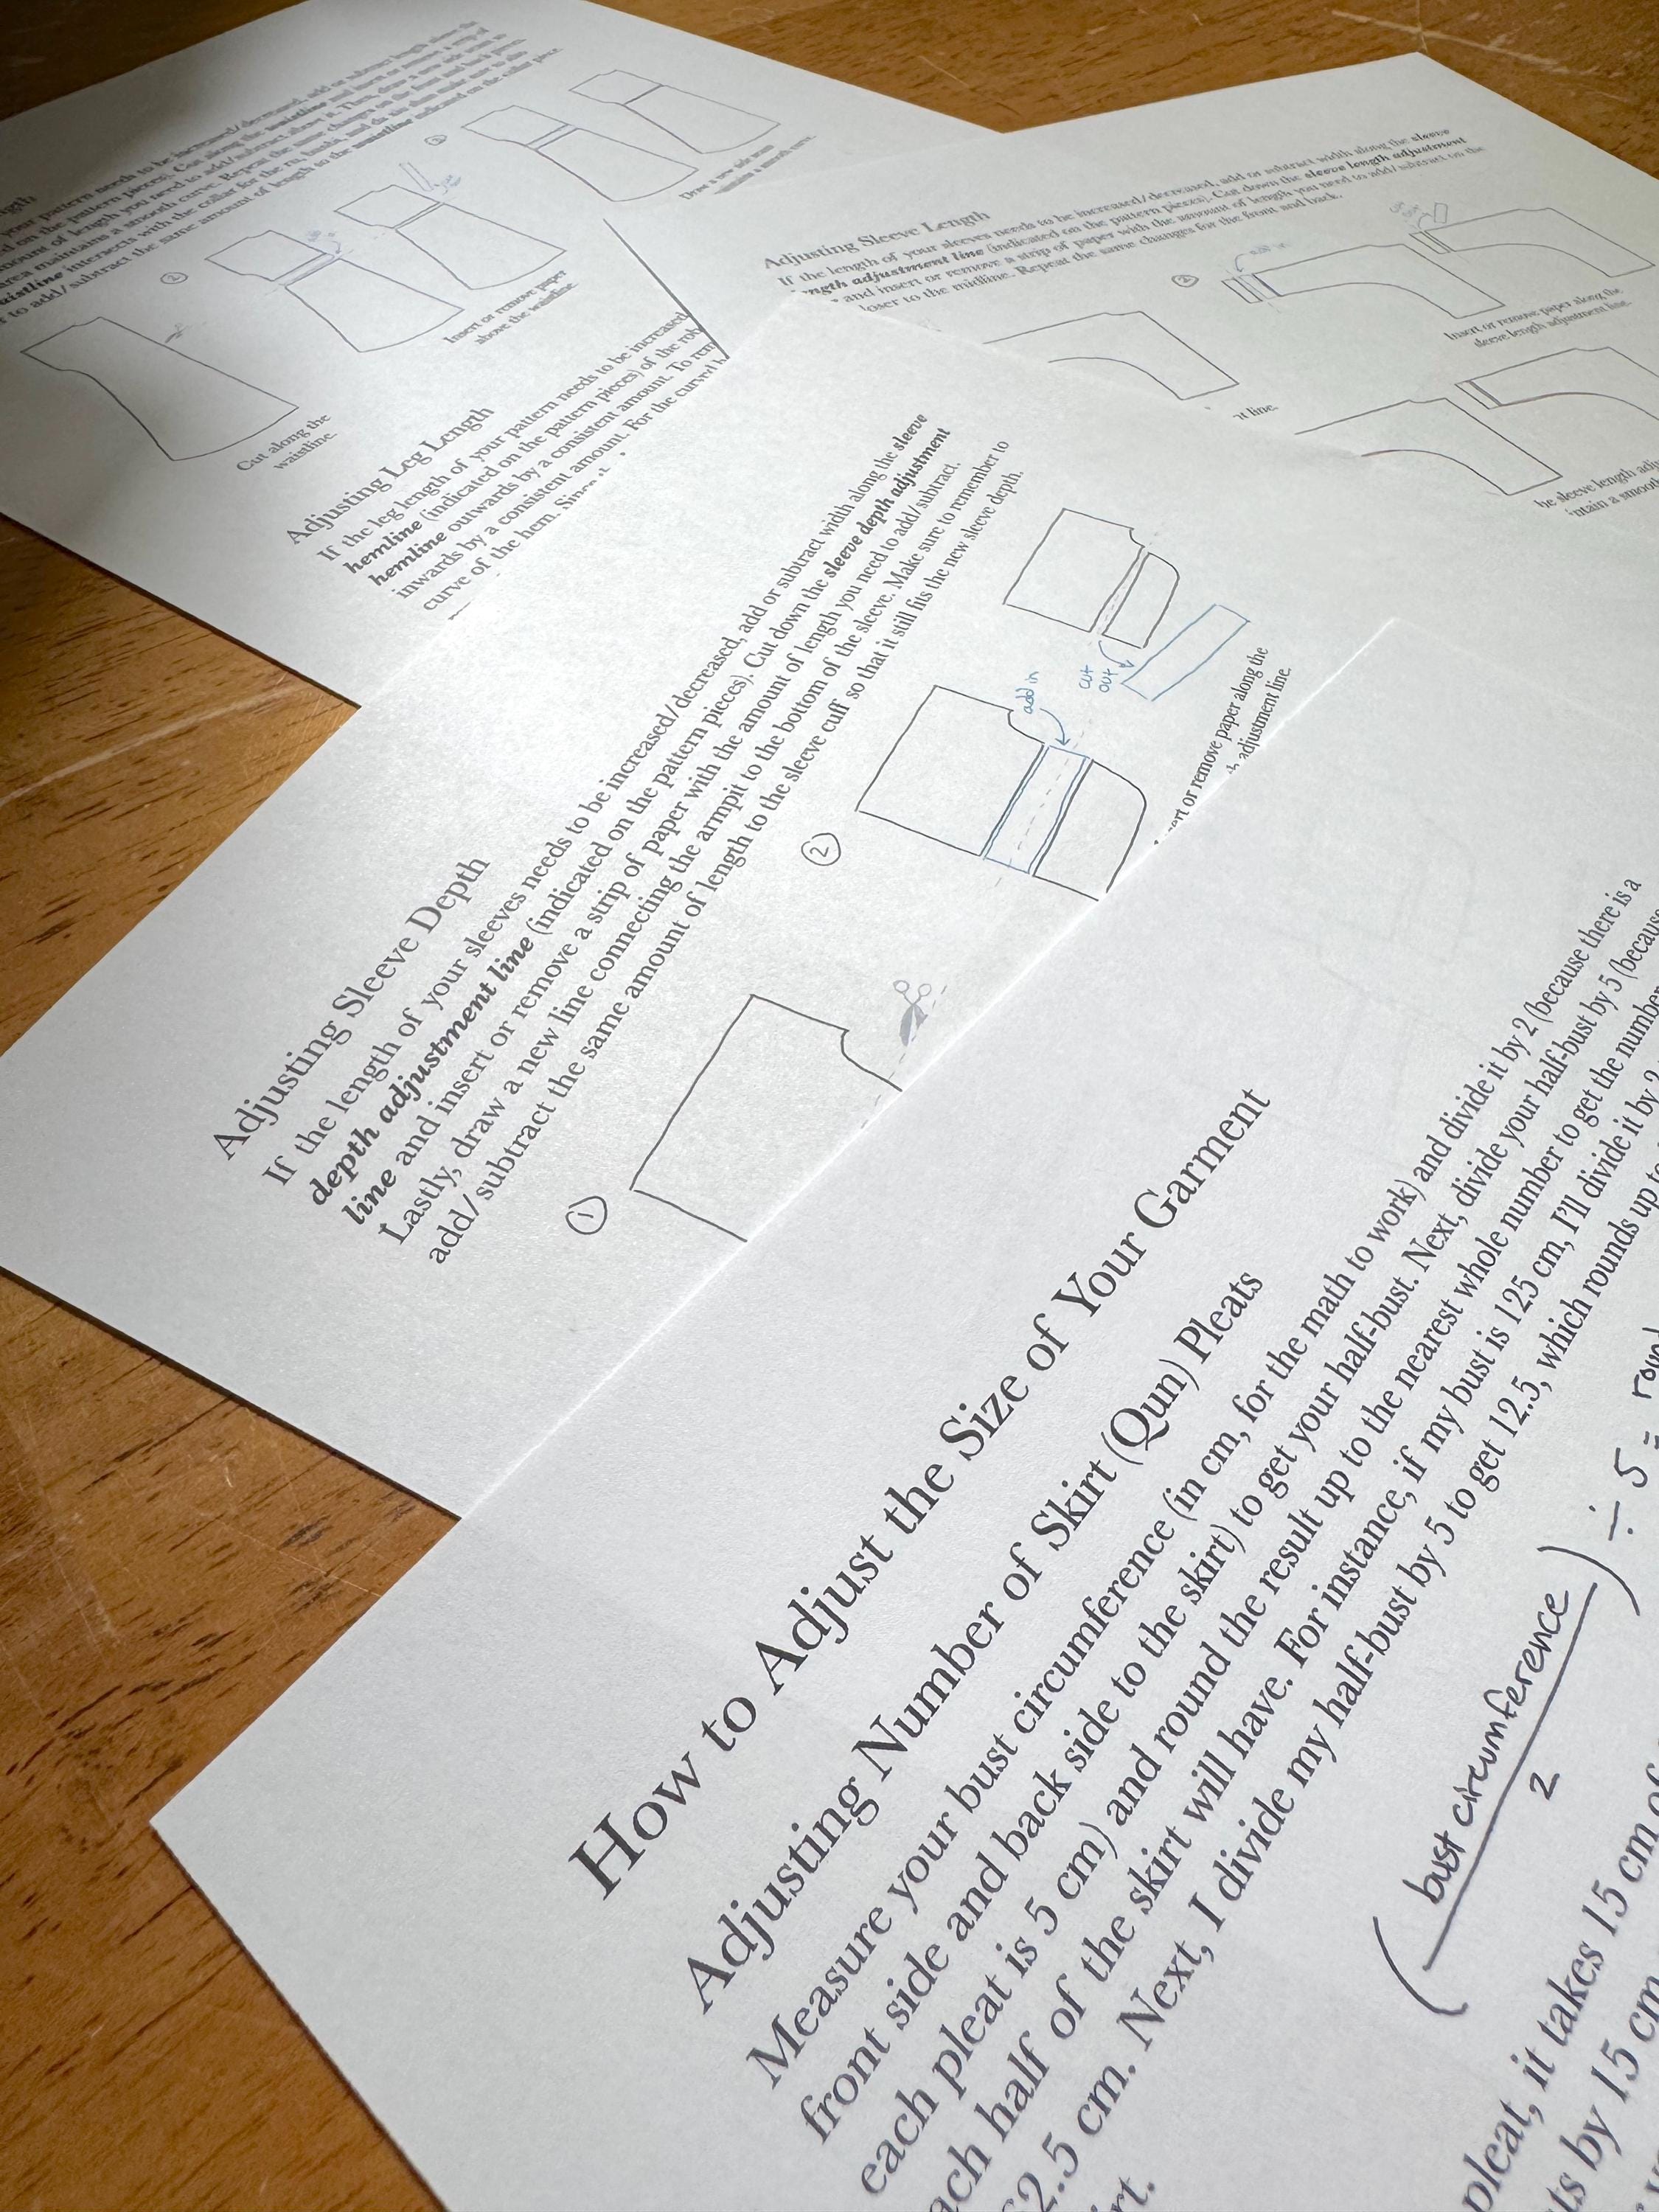 How to Adjust the Size of Your Garment
Adjusting Number of Skirt (Qun) Pleats
Measure your bust circumference (in cm, for the math to work) and divide it by 2 (because there is a
front side and back side to the skirt) to get your half-bust. Next, divide your half-bust by 5 (because
each pleat is 5 cm) and round the result up to the nearest whole number to get the number
half of the skirt will have. For instance, if my bust is 125 cm, I'll divide it by 2
cm. Next, I divide my half-bust by 5 to get 12.5, which rounds up to
(bust circumference
2
) ÷ 5 =
pleat, it takes 15 cm of
by 15 cm
Adjusting Sleeve Depth
If the length of your sleeves needs to be increased/decreased, add or subtract width along the sleeve
depth adjustment line (indicated on the pattern pieces). Cut down the sleeve depth adjustment
line and insert or remove a strip of paper with the amount of length you need to add/subtract.
Lastly, draw a new line connecting the armpit to the bottom of the sleeve. Make sure to remember to
add/subtract the same amount of length to the sleeve cuff so that it still fits the new sleeve depth.
1
2
add in
cut
out
or remove paper along the
adjustment line.
Adjusting Sleeve Length
If the length of your sleeves needs to be increased/decreased, add or subtract width along the sleeve
length adjustment line (indicated on the pattern pieces). Cut down the sleeve length adjustment
and insert or remove a strip of paper with the amount of length you need to add/subtract
closer to the midline. Repeat the same changes for the front and back.
2
Insert or remove paper along the
sleeve length adjustment line.
line.
sleeve length
a smooth
your pattern needs to be increased/decreased, add or subtract length
on the pattern pieces). Cut along the waistline and insert or remove a strip of
amount of length you need to add/subtract above it. Then, draw a new side seam
area maintains a smooth curve. Repeat the same changes on the front and back
waistline intersects with the collar for the
to add/subtract the same amount of length to the waistline indicated on the collar
2
3
Cut along the
waistline.
Insert or remove paper
above the waistline.
Draw a new side seam
Adjusting Leg Length
If the leg length of your pattern needs to be increased
hemline (indicated on the pattern pieces) of the
hemline outwards by a consistent amount. To
inwards by a consistent amount. For the curved
curve of the hem.